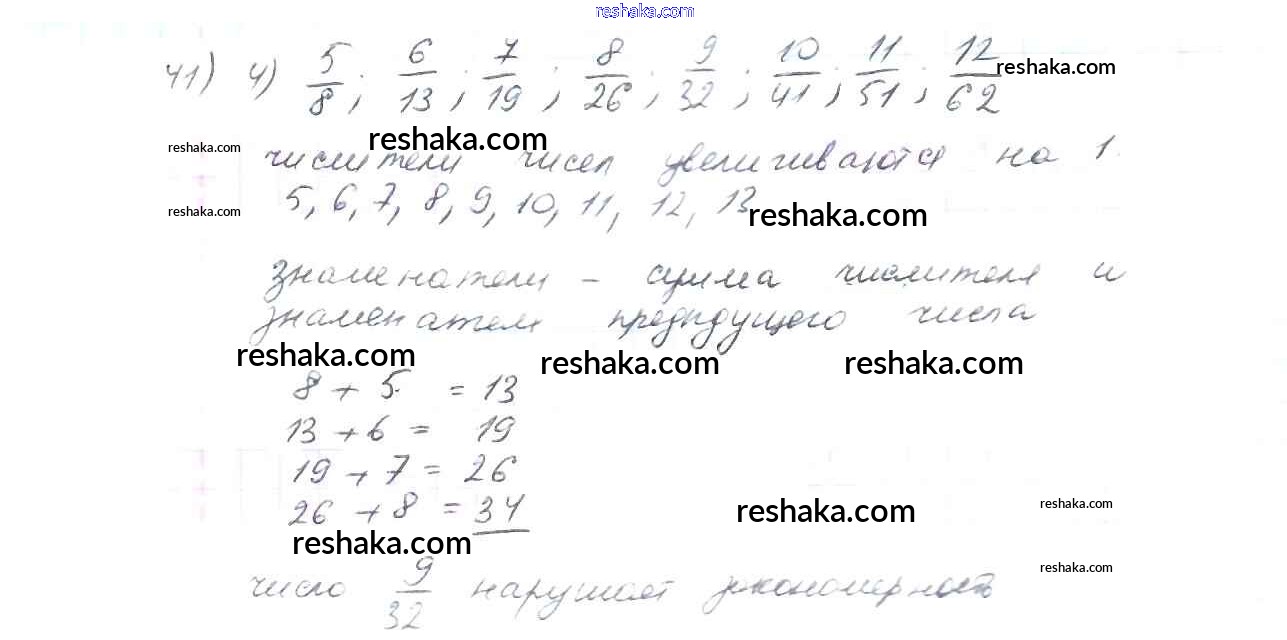 reshaka.com
41) 4) 5/8; 6/13; 7/19; 8/26; 9/32; 10/41; 11/51; 12/62
reshaka.com
reshaka.com
reshaka.com
числители чисел увеличиваются на 1.
5, 6, 7, 8, 9, 10, 11, 12, 13
reshaka.com
reshaka.com
Знаменатели – сумма числителя и
знаменателя предыдущего числа
reshaka.com
reshaka.com
reshaka.com
8 + 5 = 13
13 + 6 = 19
19 + 7 = 26
26 + 8 = 34
reshaka.com
reshaka.com
reshaka.com
reshaka.com
число 9/32 нарушает закономерность